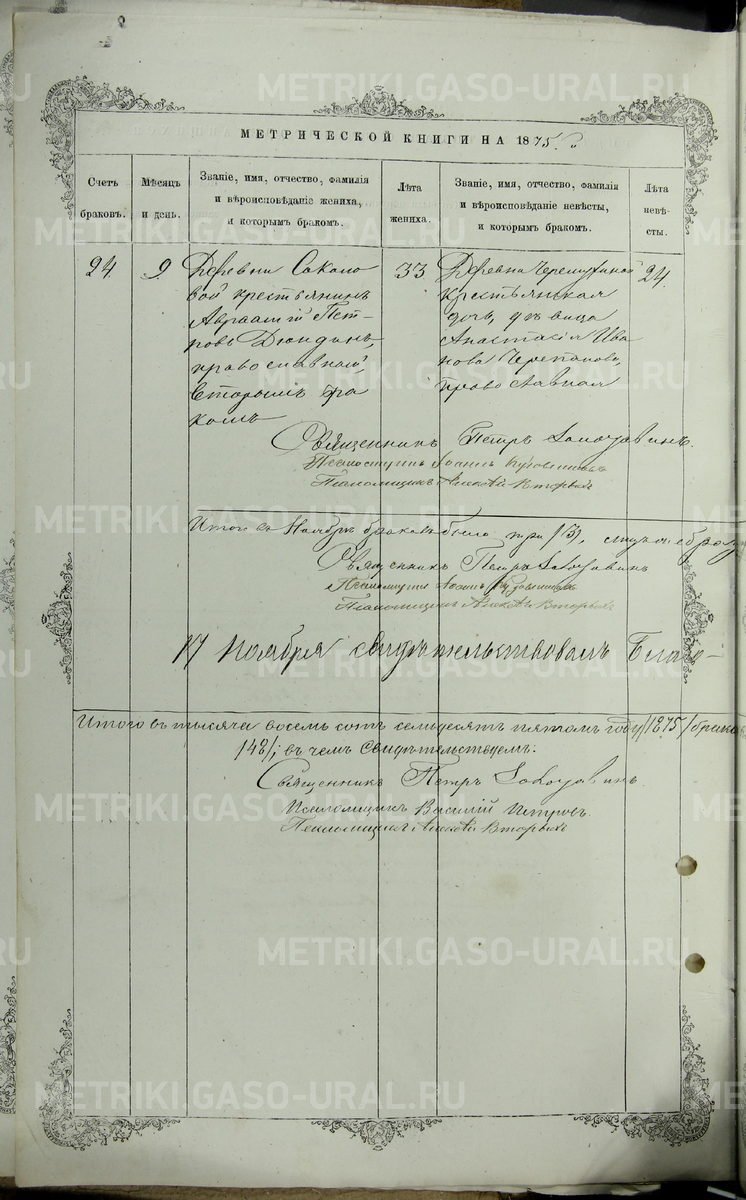 МЕТРИЧЕСКОЙ КНИГИ НА 1875.
Счетъ
браковъ.
Мѣсяцъ
и день.
Званіе, имя, отчество, фамилія
и вѣроисповѣданіе жениха,
и которымъ бракомъ.
Лѣта
жениха.
Званіе, имя, отчество, фамилія
и вѣроисповѣданіе невѣсты,
и которымъ бракомъ.
Лѣта
невѣ-
сты.
24.
9
Деревни Соколо
вой крестьянинъ
Авраамій Пет-
ровъ Дюндинъ,
православный,
вторымъ бра
комъ
33
Деревни
крестьянская
дочь, девица
Анастасія Ива
нова Черепанова,
православная
24.
Священникъ Петръ
Іоаннъ
Псаломщикъ Алексѣй Вторыхъ
Итого въ Ноябрѣ браковъ было три /3/,
Священникъ Петръ
Іоаннъ
Псаломщикъ Алексѣй Вторыхъ
17 Ноября свидѣтельствовалъ Благо-
Итого въ тысяча восемь сотъ семьдесятъ пятомъ году /1875/ брако
въ чемъ свидѣтельствуемъ:
Священникъ Петръ
Псаломщикъ Василій
Псаломщикъ Алексѣй Вторыхъ
METRIKI.GASO-URAL.RU